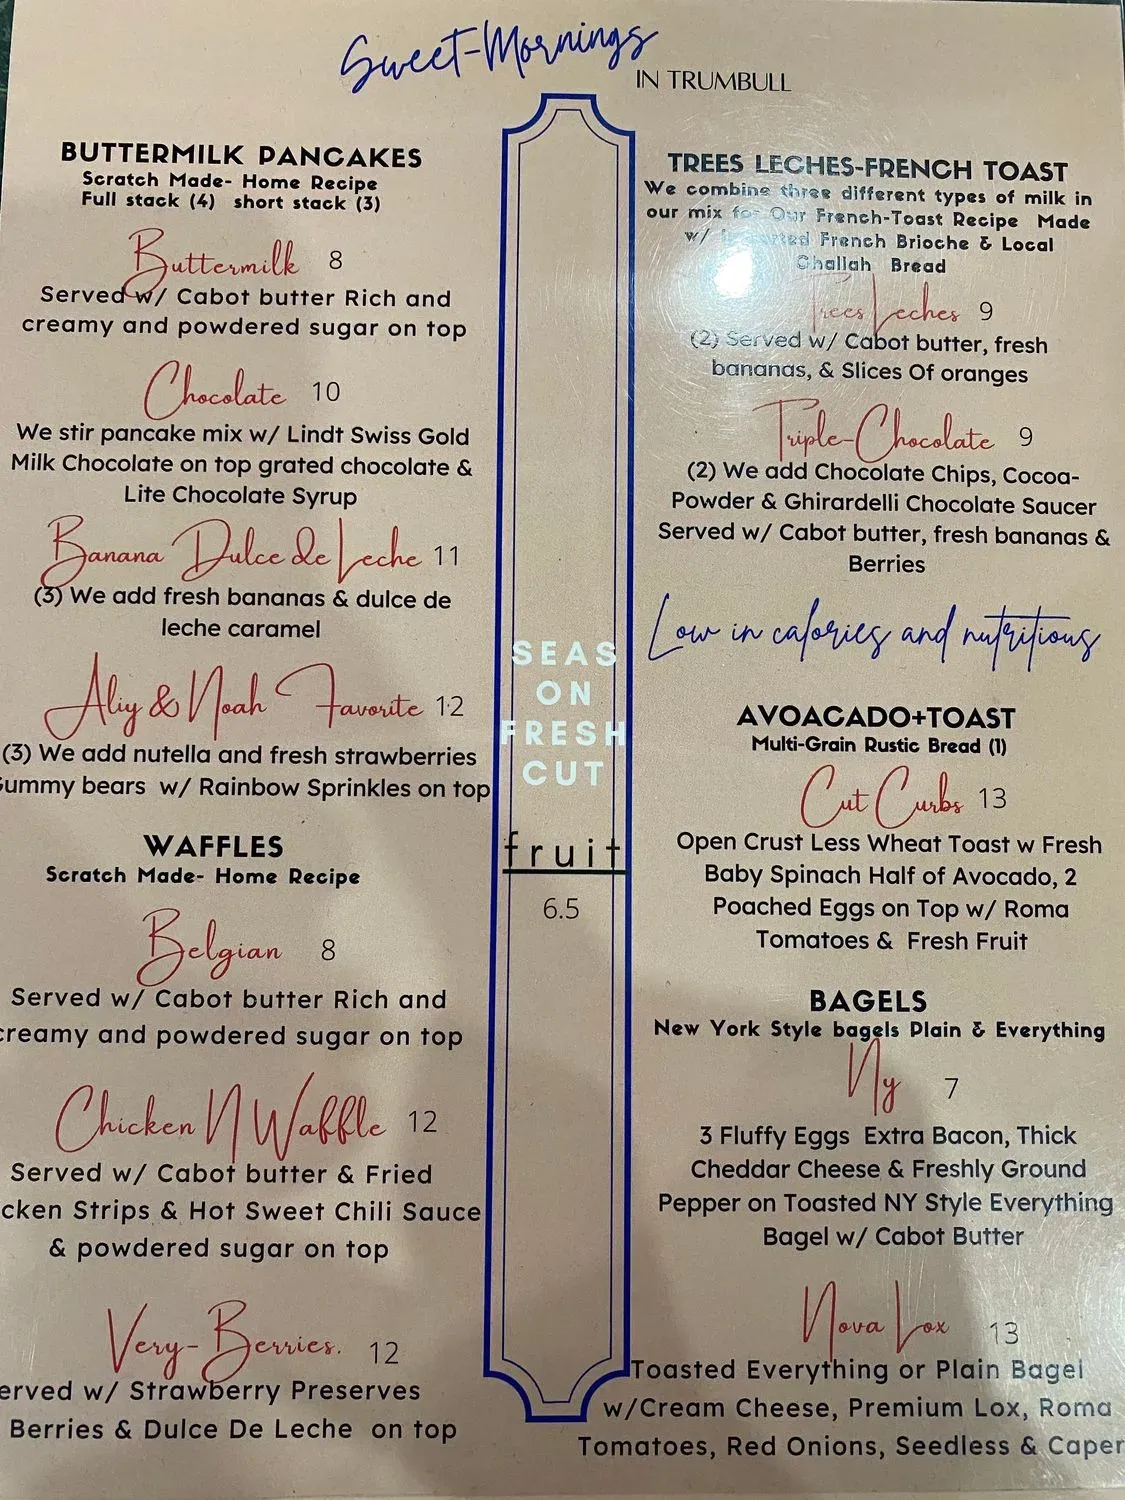 Sweet-Mornings
IN TRUMBULL
BUTTERMILK PANCAKES
Scratch Made- Home Recipe
Full stack (4) short stack (3)
Buttermilk 8
Served w/ Cabot butter Rich and
creamy and powdered sugar on top
Chocolate 10
We stir pancake mix w/ Lindt Swiss Gold
Milk Chocolate on top grated chocolate &
Lite Chocolate Syrup
Banana Dulce de Leche 11
(3) We add fresh bananas & dulce de
leche caramel
Aliy & Noah Favorite 12
(3) We add nutella and fresh strawberries
ummy bears w/ Rainbow Sprinkles on top
WAFFLES
Scratch Made- Home Recipe
Belgian 8
Served w/ Cabot butter Rich and
creamy and powdered sugar on top
Chicken N Waffle 12
Served w/ Cabot butter & Fried
cken Strips & Hot Sweet Chili Sauce
& powdered sugar on top
Very-Berries. 12
erved w/ Strawberry Preserves
Berries & Dulce De Leche on top
SEAS
ON
FRESH
CUT
fruit
6.5
TREES LECHES-FRENCH TOAST
We combine three different types of milk in
our mix for Our French-Toast Recipe Made
w/ Imported French Brioche & Local
Challah Bread
Trees Leches 9
(2) Served w/ Cabot butter, fresh
bananas, & Slices Of oranges
Triple-Chocolate 9
(2) We add Chocolate Chips, Cocoa-
Powder & Ghirardelli Chocolate Saucer
Served w/ Cabot butter, fresh bananas &
Berries
Low in calories and nutritious
AVOACADO+TOAST
Multi-Grain Rustic Bread (1)
Cut Curbs 13
Open Crust Less Wheat Toast w Fresh
Baby Spinach Half of Avocado, 2
Poached Eggs on Top w/ Roma
Tomatoes & Fresh Fruit
BAGELS
New York Style bagels Plain & Everything
Ny 7
3 Fluffy Eggs Extra Bacon, Thick
Cheddar Cheese & Freshly Ground
Pepper on Toasted NY Style Everything
Bagel w/ Cabot Butter
Nova Lox 13
Toasted Everything or Plain Bagel
w/Cream Cheese, Premium Lox, Roma
Tomatoes, Red Onions, Seedless & Caper